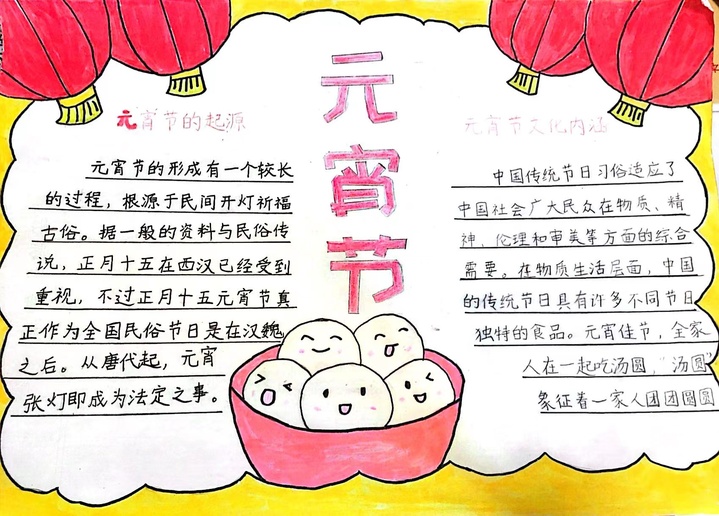 元宵节
元宵节的起源
元宵节的形成有一个较长
的过程，根源于民间开灯祈福
古俗。据一般的资料与民俗传
说，正月十五在西汉已经受到
重视，不过正月十五元宵节真
正作为全国民俗节日是在汉魏
之后。从唐代起，元宵
张灯即成为法定之事。
元宵节文化内涵
中国传统节日习俗适应了
中国社会广大民众在物质、精
神、伦理和审美等方面的综合
需要。在物质生活层面，中国
的传统节日具有许多不同节日
独特的食品。元宵佳节，全家
人在一起吃汤圆，“汤圆”
象征着一家人团团圆圆